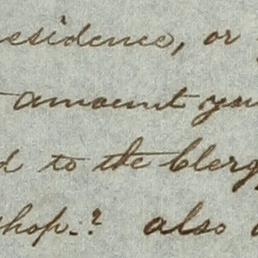 esidence, or
amount you
d to the Clerg
shop.? also